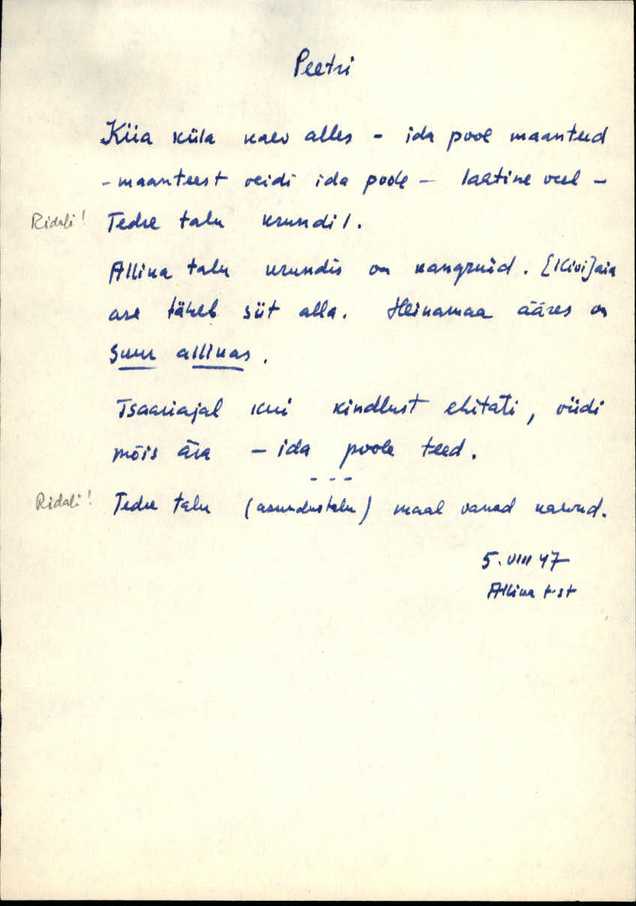 Peetri
Kiia küla kaev alles - ida pool maanteed
- maanteest veidi ida poole - laatine veel -
Ridali! Tedre talu krundil.
Allika talu krundis on kangruid. [Kivi]aia
ase läheb siit alla. Heinamaa ääres on
suur allikas.
Tsaariajal kui kindlust ehitati, viidi
mõis ära - ida poole teed.
- - -
Ridali! Tedre talu (asundustalu) maal vanad kaevud.
5. VIII 47
Allika t-st